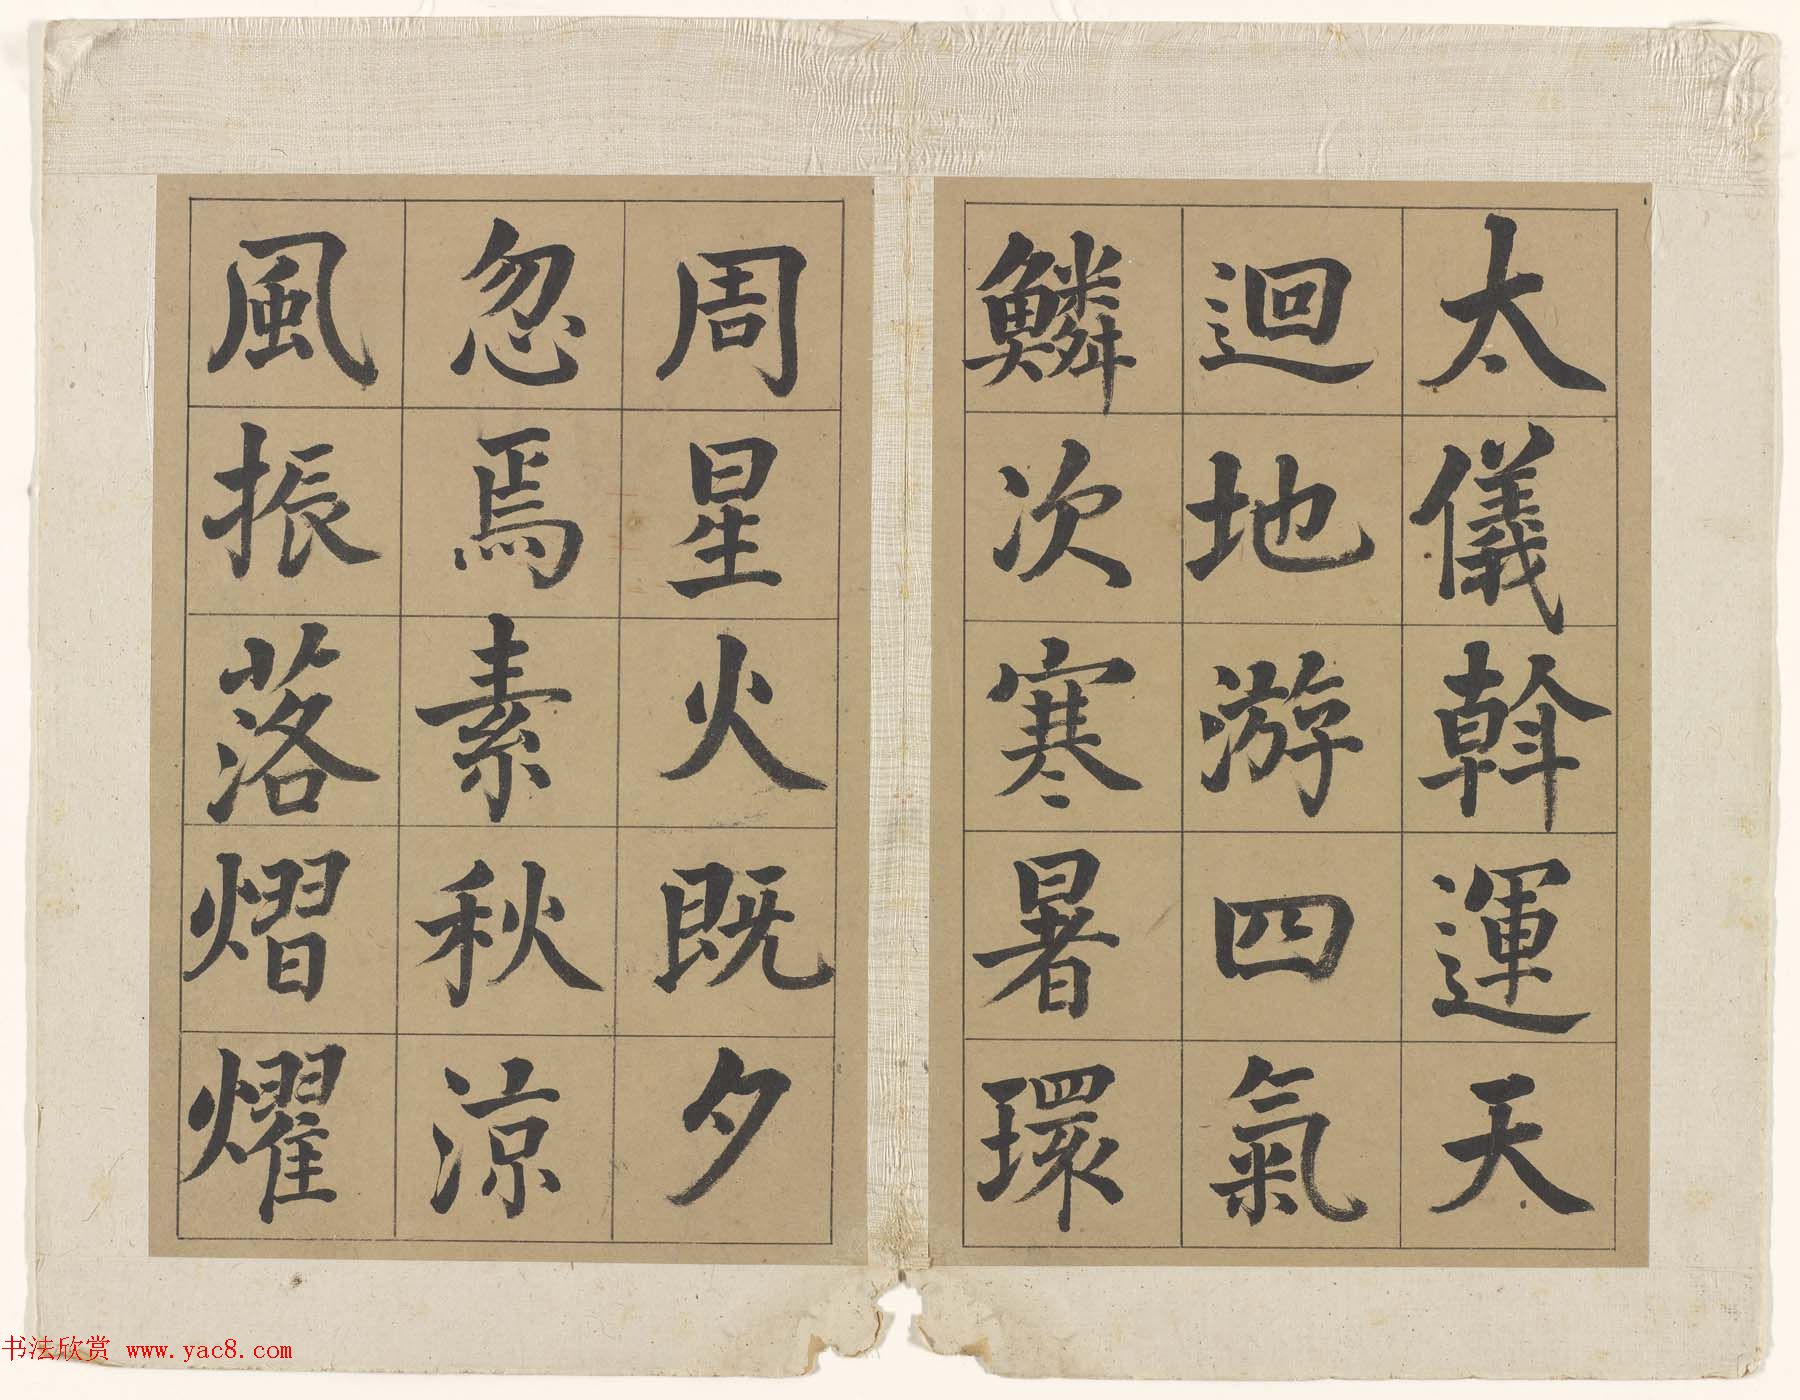 太儀斡運天
迴地游四氣
鱗次寒暑環
周星火既夕
忽焉素秋涼
風振落熠燿
书法欣赏 www.yac8.com